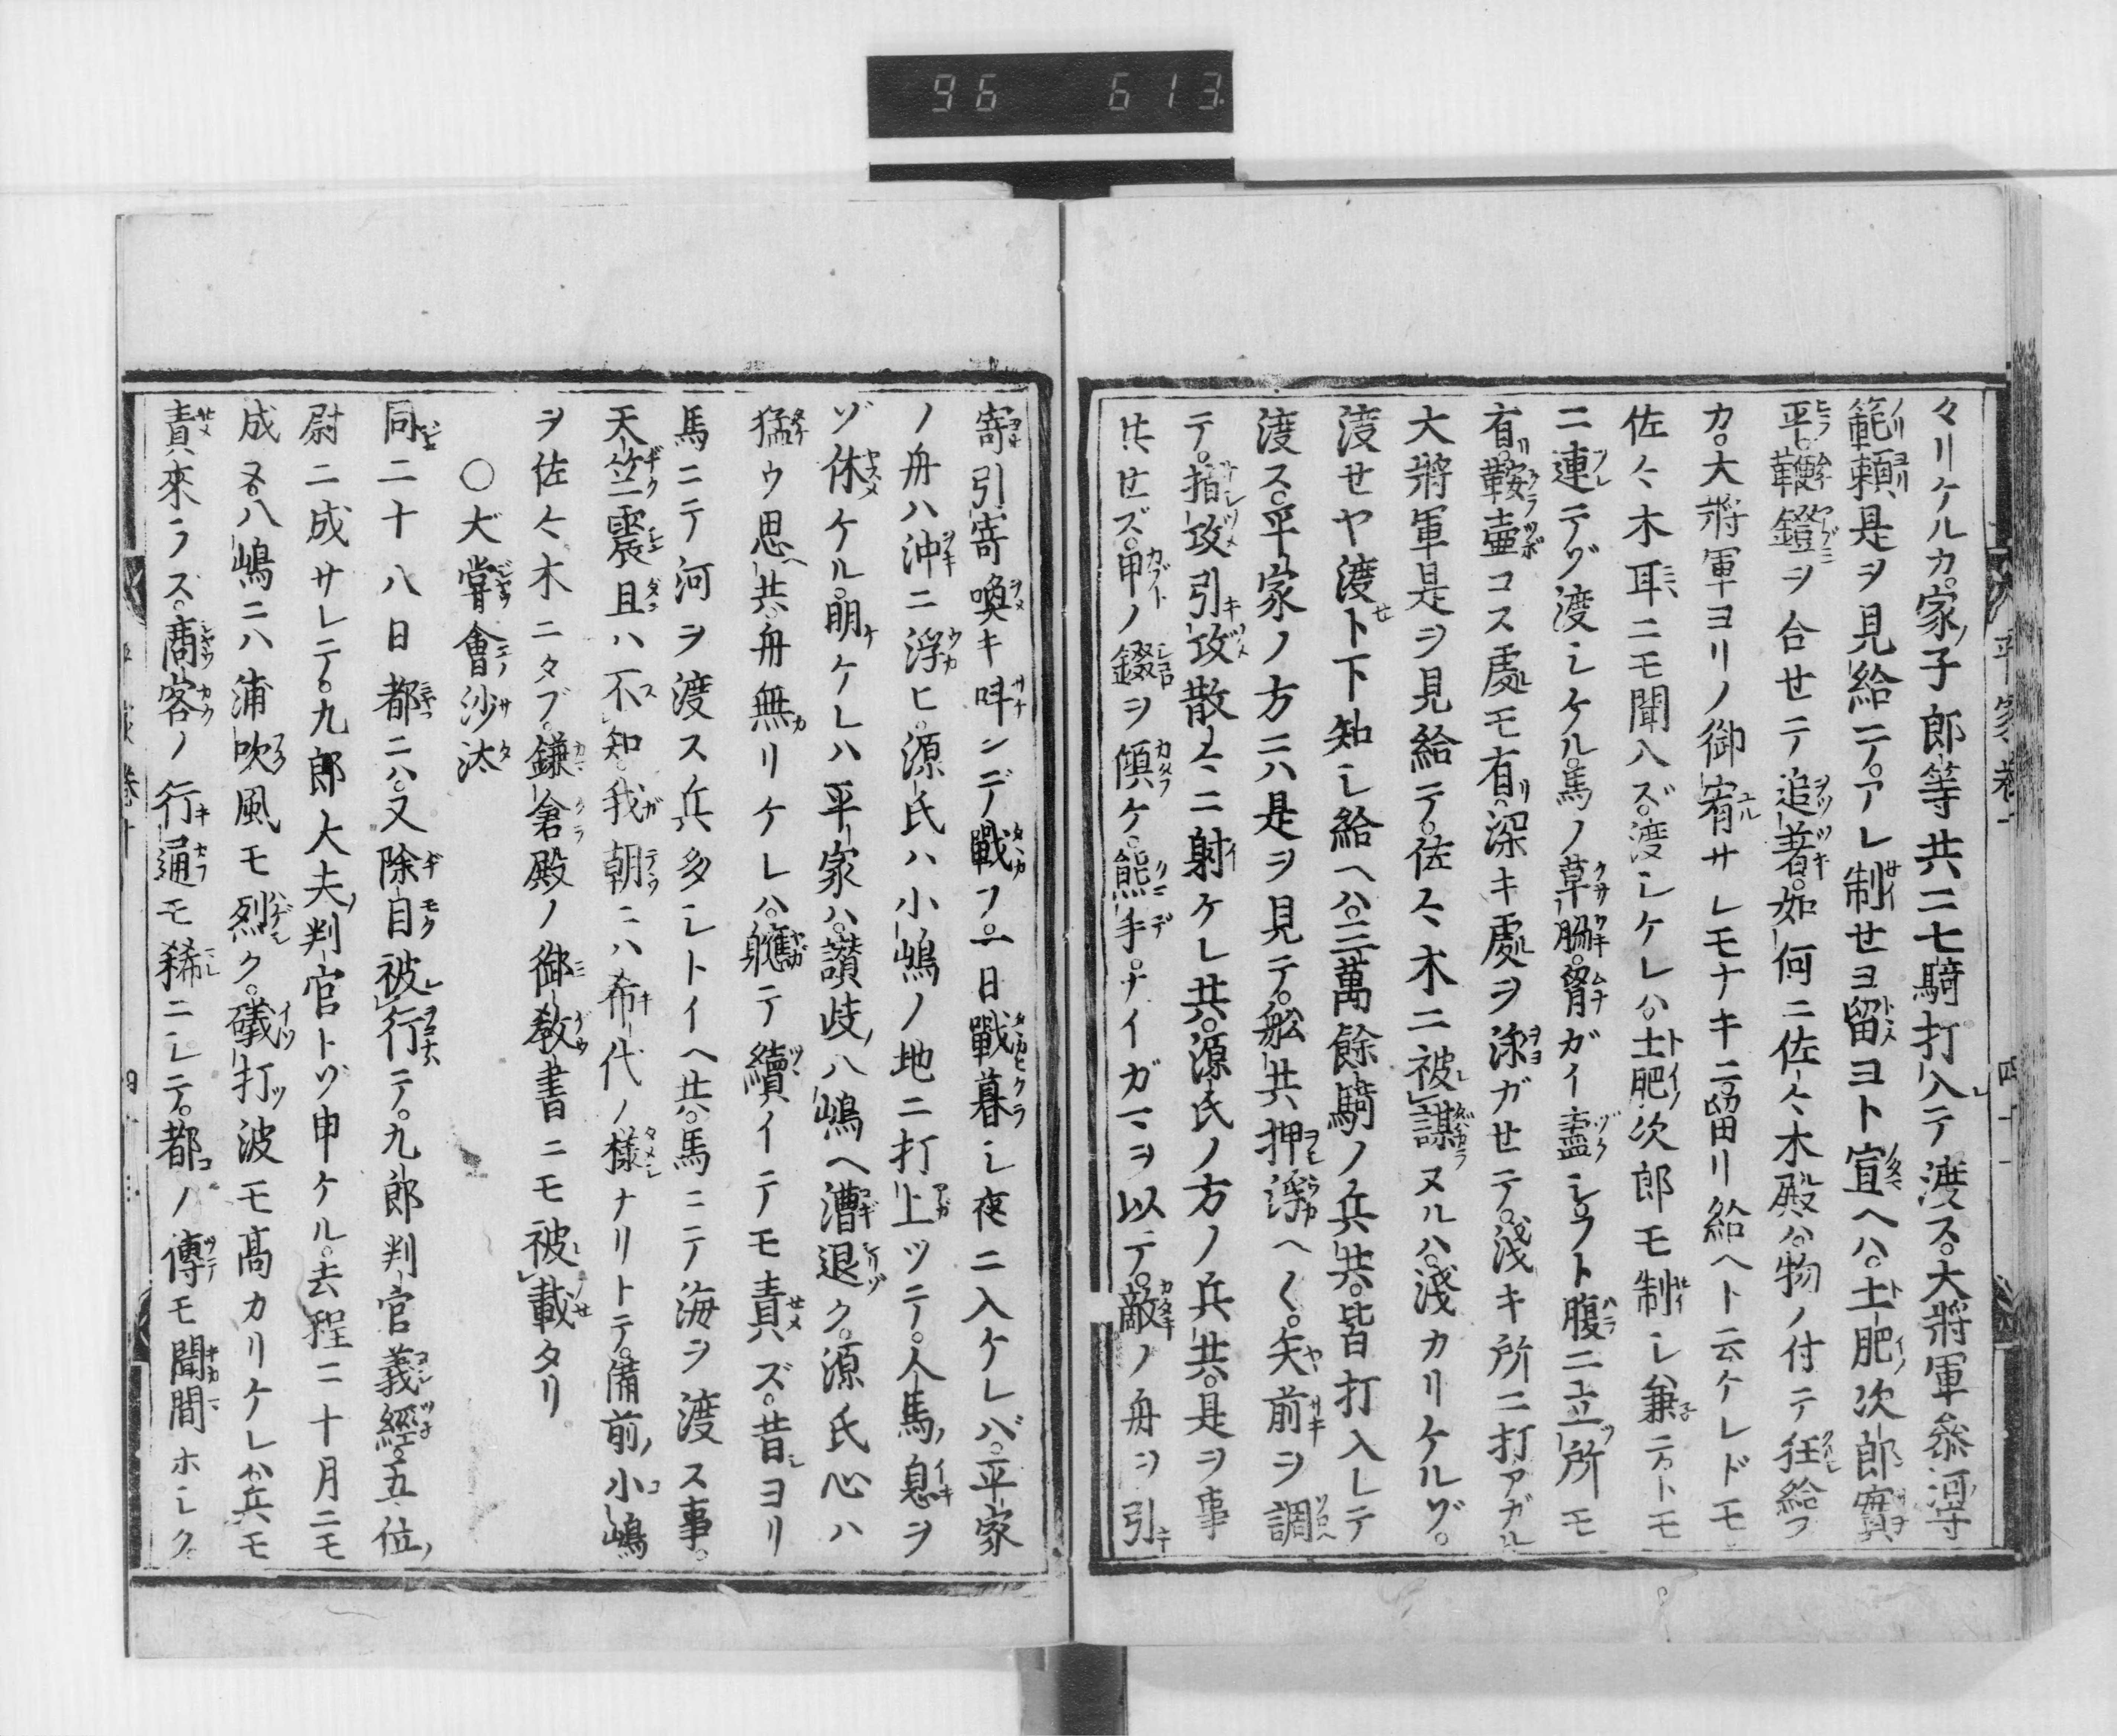 96 613
々リケルカ。家子郎等共ニ七騎打入テ渡ス。大將軍參河守
範頼是ヲ見給テ。アレ制セヨ留ヨト宣ヘハ。土肥次郎實
平。鞭鐙ヲ合セテ追著。如何ニ佐々木殿ハ。物ノ付テ狂給フ
カ。大將軍ヨリノ御宥サレモナキニ留リ給ヘト云ケレドモ
佐々木耳ニモ聞入ズ。渡シケレハ。土肥次郎モ制シ兼テ
ニ連テゾ渡シケル。馬ノ草脇。胷ガイ盡シ。フト腹ニ立所モ
有。鞍壷コス處モ有。深キ處ヲ游ガセテ。淺キ所ニ打アガル
大將軍是ヲ見給テ。佐々木ニ被謀ヌルハ。淺カリケルゾ。
渡セヤ渡ト下知シ給ヘハ。三萬餘騎ノ兵共。皆打入レテ
渡ス。平家ノ方ニハ是ヲ見テ。舩共押浮ヘ〳〵。矢前ヲ調
テ。指攻引攻散々ニ射ケレ共。源氏ノ方ノ兵共。是ヲ事
共セズ。甲ノ錣ヲ傾ケ。熊手。ナイガマヲ以テ。敵ノ舟ヲ引
寄引寄喚キ叫ンデ戰フ。一日戰暮シ夜ニ入ケレバ。平家
ノ舟ハ沖ニ浮ヒ。源氏ハ小嶋ノ地ニ打上ツテ。人馬ノ息ヲ
ゾ休ケル。明ケレハ平家ハ。讃岐ノ八嶋ヘ漕退ク。源氏心ハ
猛ウ思ヘ共。舟無リケレハ。軈テ續イテモ責ズ。昔ヨリ
馬ニテ河ヲ渡ス兵多シトイヘ共。馬ニテ海ヲ渡ス事。
天竺震旦ハ不知。我朝ニハ希代ノ樣ナリトテ。備前ノ小嶋
ヲ佐々木ニタブ。鎌倉殿ノ御教書ニモ被載タリ。
○大嘗會沙汰
同二十八日都ニハ。又除目被行テ。九郎判官義經。五位ノ
尉ニ成サレテ。九郎大夫判官トゾ申ケル。去程ニ十月ニモ
成ヌ。八嶋ニハ浦吹風モ烈ク。礒打波モ高カリケレハ。兵モ
責來ラズ。商客ノ行通モ稀ニシテ。都ノ傳モ聞間ホシク。